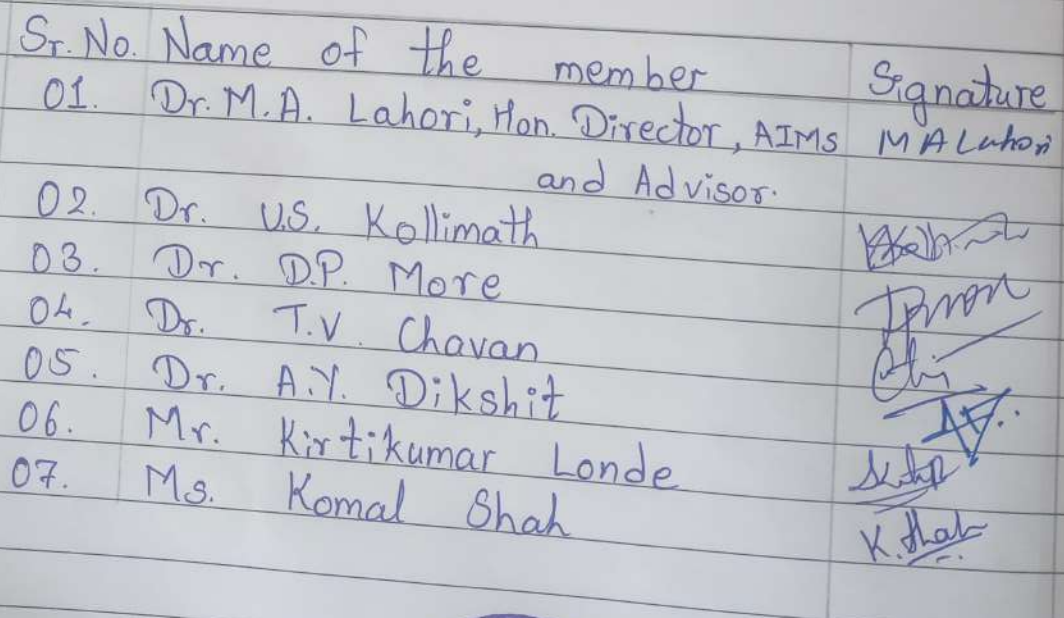 Sr. No. Name of the member Signature
01. Dr. M.A. Lahori, Hon. Director, AIMS M A Lahori
and Advisor.
02. Dr. U.S. Kollimath
03. Dr. D.P. More
04. Dr. T.V. Chavan
05. Dr. A.Y. Dikshit
06. Mr. Kirtikumar Londe
07. Ms. Komal Shah K. Shah